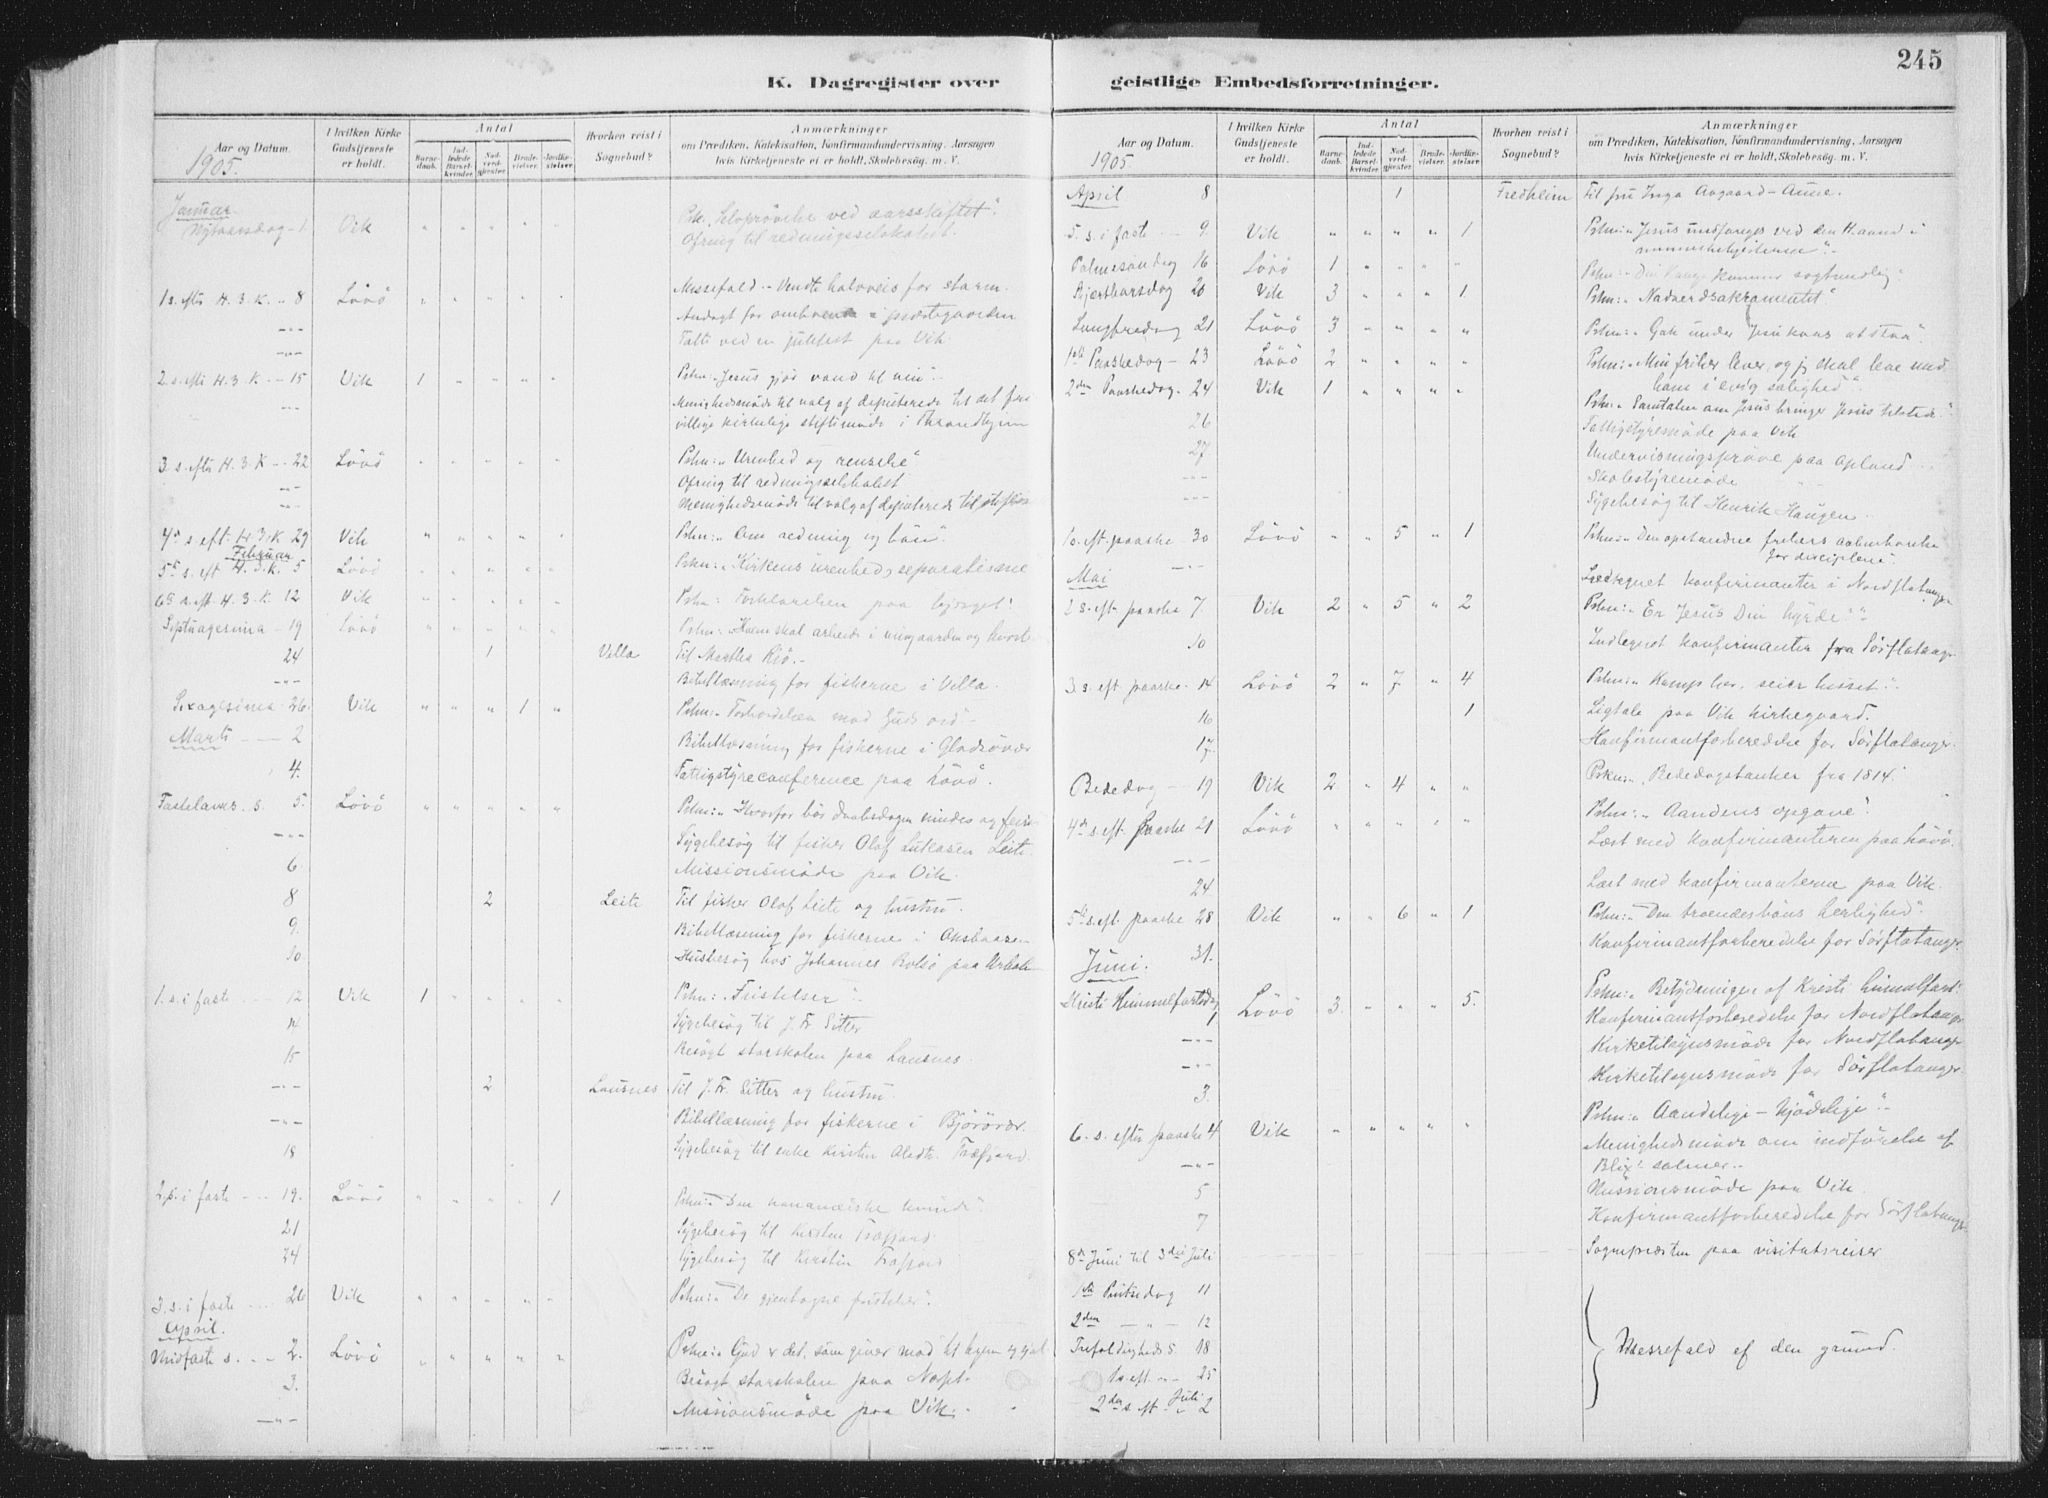 245
K. Dagregister over
Aar og Datum.
I hvilken Kirke Gudstjeneste er holdt.
Antal
Barne-daab.
Ind-ledede Barsel-kvinder.
Nad-verd-gjester.
Brude-vielser.
Jordfæ-stelser.
Hvorhen reist i Sognebud?
Anmærkninger
om Prædiken, Katekisation, Konfirmandundervisning, Aarsagen
hvis Kirketjeneste ei er holdt, Skolebesøg. m. V.
1905.
Januar
Nytaarsdag - 1 Vik " " " " " Prk: Selvprøvelse ved aarsskiftet".
Ofring til redningsselskabet.
1 s. efter H. 3. K. " 8 Lövö " " " " " Messefald. - Vendte halvveis for storm.
-"- Andagt for omboende i præstegaarden
-"- Talte ved en julefest paa Vik.
2. s. eft H. 3. K. - 15 Vik 1 " " " " Prkn: "Jesus gjør vand til vin".
-"- Menighedsmöde til valg af deputerede til det fri
villige kirkelige stiftsmöde i Throndhjem
3. s. efter H. 3. K - 22 Lövö " " " " " Prkn: "Urenhed og renselse"
-"- Ofring til redningsselskabet
-"- Menighedsmöde til valg af deputerede til stiftsm
4de s. eft. H. 3. K 29 Vik " " " " " Prkn: "Om redning og bön".
Februar
5te s. eft H. 3. K. 5 Lövö " " " " " Prkn: "Kirkens urenhed, separatisme
6te s. eft. H. 3. K. 12 Vik " " " " " Prkn: Forklarelsen paa bjerget!
Septuagesima - 19 Lövö " " " " " Prkn: "Hvem skal arbeide i vingaarden og hvorl
24 1 Villa Til Martha Riö. -
-"- Bibellæsning for fiskerne i Villa.
Sexagesima - 26 Vik " " " 1 " Prkn: "Forholdelsen mod Guds ord" -
Marts - - 2 Bibellæsning for fiskerne i Gladsövær
4. Fattigstyreconference paa Lövö.
Fastelavns. s. 5. Lövö " " " " " Prkn: "Hvorfor bör daabsdagen mindes og feires
-"- Sygebesøg til fisker Olaf Lukasen Leite.
6 Missionsmöde paa Vik.
8 2 Leite Til fisker Olaf Leite og hustru.
9. Bibellæsning for fiskerne i
10 Husbesøg hos Johannes Rolsø paa
1. s. i faste - - 12 Vik 1 " " " " Prkn: "Fristelser".
14 Sygebesøg til J. Fr. Sitter
15 Besøgt storskolen paa Lausnes.
-"- 2 Lausnes Til J. Fr. Sitter og hustru.
-"- Bibellæsning for fiskerne i Björövær.
18 Sygebesøg til enke Kirsten Træfjord.
2. s. i faste - - 19. Lövö " " " " 1 Prkn: "Den kananæiske kvinde".
21 Sygebesøg til Kirsten Træfjord.
24 Sygebesøg til Kirstin Træfjord.
3. s. i faste - - 26 Vik " " " " " Prkn: "De gjentagne fristelser".
April.
Midfaste s. - - 2. Lövö " " " " " Prkn: "Gud er det, som giver mad til legem og sjæl
3. Besøgt storskolen paa Næpl.
-"- Missionsmöde paa Vik.
geistlige Embedsforretninger.
Aar og Datum.
I hvilken Kirke Gudstjeneste er holdt.
Antal
Barne-daab.
Ind-ledede Barsel-kvinder.
Nad-verd-gjester.
Brude-vielser.
Jordfæ-stelser.
Hvorhen reist i Sognebud?
Anmærkninger
om Prædiken, Katekisation, Konfirmandundervisning, Aarsagen
hvis Kirketjeneste ei er holdt, Skolebesøg. m. V.
1905
April 8 1 Fredheim Til fru Inga Aagaard - Aune.
5. s. i faste - 9. Vik " " " " 1 Prkn: "Jesus undfanges ved den H. aand i
menneskehjerterne".
Palmesöndag 16 Lövö 1 " " " " Prkn: "Din konge kommer sagtmodig"
Skjærthorsdag 20 Vik 3 " " " 1 Prkn: "Nadverdsakramentet"
Langfredag 21 Lövö 3 " " " " Prkn: "Gak under Jesu kors at staa".
1ste Paaskedag - 23 Lövö 2 " " " " Prkn: "Min frelser lever, og jeg skal leve med
ham i evig salighed".
2den Paaskedag. 24 Vik 1 " " " " Prkn: "Samtalen om Jesus bringer Jesus tilstede".
26 Fattigstyremöde paa Vik
27 Undervisningspröve paa Opland
-"- Skolestyremöde "
-"- Sygebesøg til Henrik Haugen.
1 s. eft. paaske - 30 Lövö " " 5 " 1 Prkn: "Den opstandne frelsers aabenbarelse
for disciplene".
-"- Indtegnet konfirmanter i Nordflatanger
Mai
2 s. eft paaske 7. Vik 2 " 5 " 2 Prkn: "Er Jesus Din hyrde?"
10 Indtegnet konfirmanter fra Sörflatanger
3. s. eft paaske - 14 Lövö 2 " 7 " 4 Prkn: "Kamp her, seier hisset".
16 1 Ligtale paa Vik kirkegaard.
17. Konfirmantforberedelse for Sörflatanger.
Bededag - 19 Vik 2 " 4 " " Prkn: "Bededagstanker fra 1814".
4de s. eft. paaske 21 Lövö " " " " " Prkn: "Aandens opgave".
-"- Læst med konfirmanterne paa Lövö.
24 Læst med konfirmanterne paa Vik.
5te s. eft. paaske 28 Vik " " 6 " 1 Prkn: "Den troendes böns herlighed".
31. Konfirmantforberedelse for Sörflatanger
Juni.
Kristi Himmelfartsdag 1 Lövö 3. " " " 5. Prkn: "Betydningen af Kristi himmelfart".
-"- Konfirmantforberedelse for Nordflatanger
-"- Kirketilsynsmöde for Nordflatanger
3. Kirketilsynsmöde for Sörflatanger.
6. s. efter paaske 4 Vik " " " " " Prkn: "Aandelige - kjödelige".
-"- Menighedsmöde om indförelse af
Blix' salmer. -
5 Missionsmöde paa Vik.
7 Konfirmantforberedelse for Sörflatanger
8de Juni til 3die Juli Sognepræsten paa visitatsreiser
1ste Pintsedag 11
2den - " - 12
Trefoldigheds s 18
1 s. eft. -"- 25
2den s. eft. " Juli 2
Messefald af den grund.